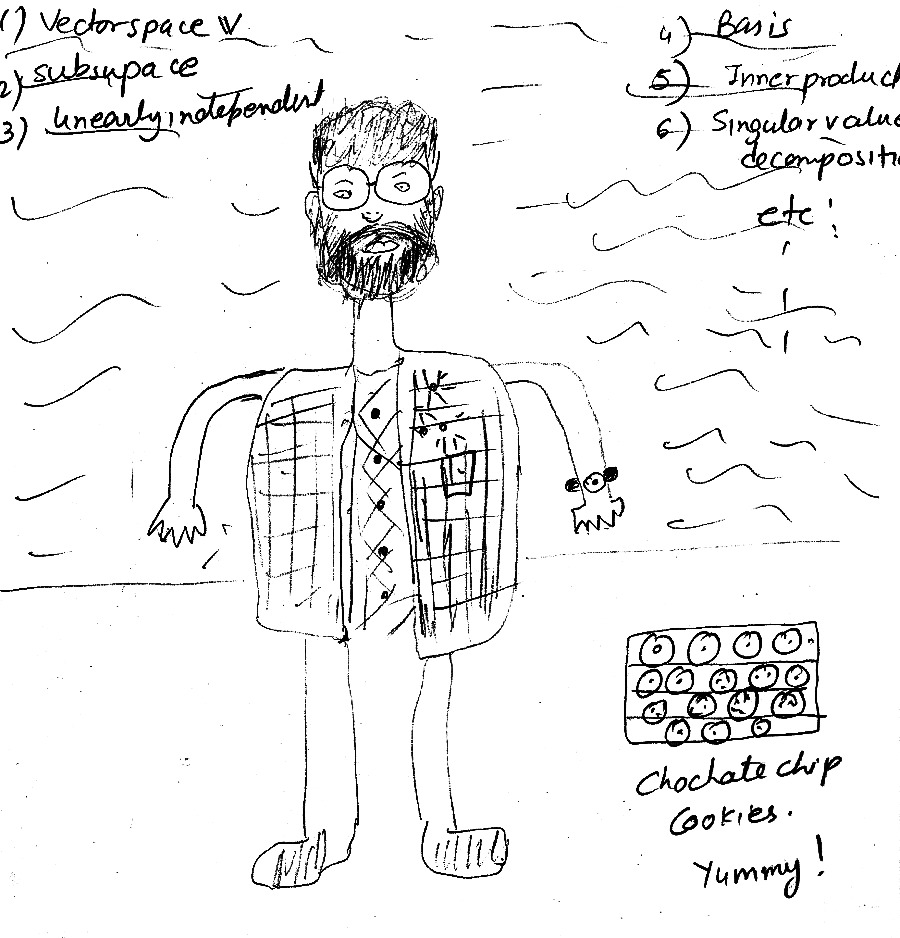 1) Vectorspace V
2) subsupace
3) linearly independent
4) Basis
5) Inner product
6) Singular value
decompositi
etc!
Chochate chip
Cookies.
Yummy!